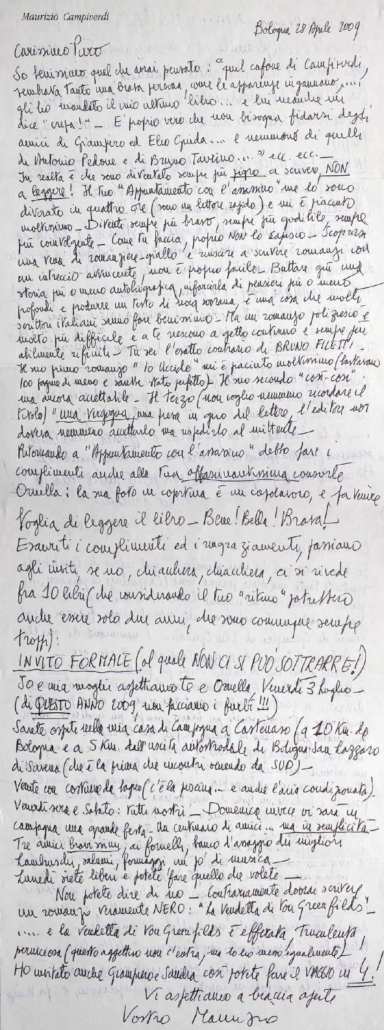 Maurizio Campiverdi
Bologna 28 Aprile 2009
Carissimo Piero
So benissimo quel che avrai pensato: "quel cafone di Campiverdi,
sembrava tanto una brava persona, come le apparenze ingannano....,
gli ho mandato il mio ultimo libro... e lui neanche mi
dice "crepa!" - E' proprio vero che non bisogna fidarsi degli
amici di Giampiero ed Elio Guida.... e nemmeno di quelli
di Antonio Pedone e di Bruno Tavrino...." ecc. ecc. -
In realtà è che sono diventato sempre più pigro a scrivere, NON
a leggere! Il tuo "Appuntamento con l'assassino" me lo sono
divorato in quattro ore (sono un lettore rapido) e mi è piaciuto
moltissimo - Diventi sempre più bravo, sempre più godibile, sempre
più coinvolgente - Come tu faccia, proprio NON lo capisco - Scoprire
una vena di romanziere-giallo e riuscire a scrivere romanzi con
un intreccio avvincente, non è proprio facile - Buttare giù una
storia più o meno autobiografica, rinforzarla di pensieri più o meno
profondi e produrre un testo di noia sovrana, è una cosa che molti
scrittori italiani sanno fare benissimo - Ma un romanzo poliziesco è
molto più difficile e a te riescono a getto continuo e sempre più
abilmente rifiniti - Tu sei l'esatto contrario di BRUNO FILETTI.
Il suo primo romanzo "Io Uccido" mi è piaciuto moltissimo (bastavano
100 pagine di meno e sarebbe stato perfetto). Il suo secondo "così-così"
ma ancora accettabile - Il Terzo (non voglio nemmeno ricordare il
titolo) "una vergogna, una presa in giro del lettore, l'editore non
doveva nemmeno accettarlo ma rispedirlo al mittente -
Ritornando a "Appuntamento con l'assassino" debbo fare i
complimenti anche alla tua affascinantissima consorte
Ornella: la sua foto in copertina è un capolavoro, e fa venire
voglia di leggere il libro - Bene! Bella! Brava! -
Esauriti i complimenti ed i ringraziamenti, passiamo
agli inviti, se no, chiacchiera, chiacchiera, ci si rivede
fra 10 libri (che considerando il tuo "ritmo" potrebbero
anche essere solo due anni, che sono comunque sempre
troppi):
INVITO FORMALE (al quale NON CI SI PUO' SOTTRARRE!)
Io e mia moglie aspettiamo te e Ornella, Venerdì 3 luglio -
(di QUESTO ANNO 2009, non facciamo i furbi!!!)
Sarete ospiti nella mia casa di Campagna a Castenaso (a 10 Km. da
Bologna e a 5 Km. dall'uscita autostradale di Bologna-San Lazzaro
di Savena (che è la prima che incontri venendo da SUD) -
Venite con costume da bagno (c'è la piscina... e anche l'aria condizionata).
Venerdì sera e Sabato: tutti nostri - Domenica invece vi sarà in
campagna una grande festa - Un centinaio di amici... ma in semplicità -
Tre amici bravissimi, ai fornelli, banco d'assaggio dei migliori
Lambruschi, salumi, formaggi un po' di musica -
Lunedì siete liberi e potete fare quello che volete -
Non potete dire di no - Contrariamente dovrai scrivere
un romanzo veramente NERO: "La Vendetta di Von Greenfields" -
..... e la vendetta di Von Greenfilds è efferata, truculenta
perniciosa (questo aggettivo non c'entra, ma lo ho messo egualmente)!
Ho invitato anche Giampiero e Sandra così potete fare il VIAGGIO in 4!
Vi aspettiamo a braccia aperte
Vostro Maurizio